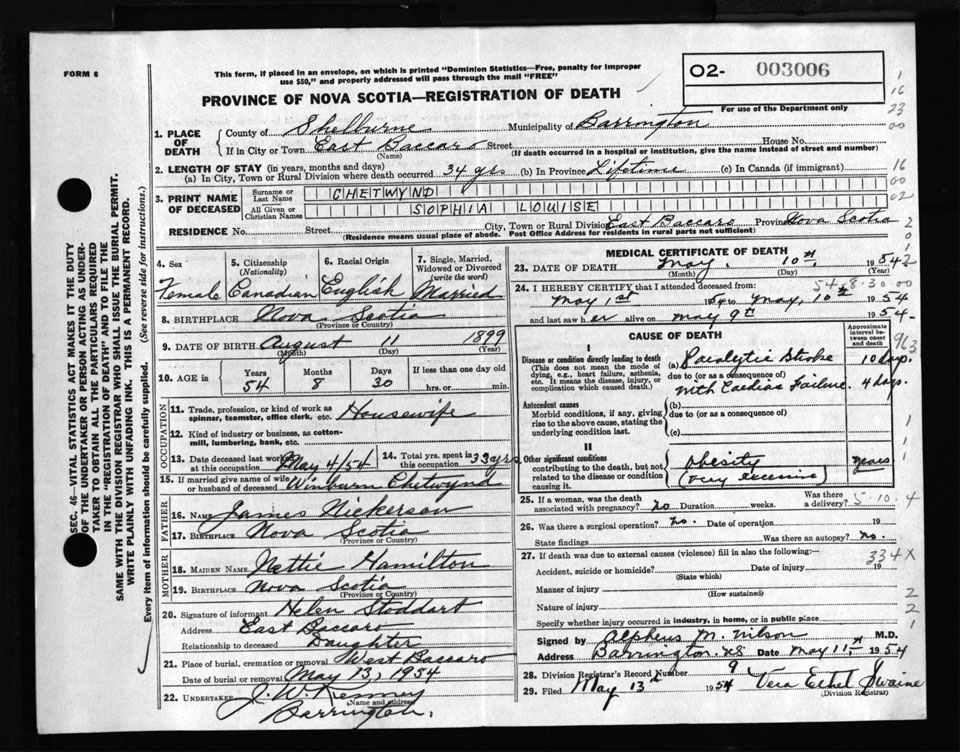 FORM 6
This form, if placed in an envelope, on which is printed "Dominion Statistics—Free, penalty for improper
use $50," and properly addressed will pass through the mail "FREE"
O2- 003006
For use of the Department only
PROVINCE OF NOVA SCOTIA—REGISTRATION OF DEATH
1
16
23
00
16
00
02
2
0
1
2
SEC. 46—VITAL STATISTICS ACT MAKES IT THE DUTY
OF THE UNDERTAKER OR PERSON ACTING AS UNDER-
TAKER TO OBTAIN ALL THE PARTICULARS REQUIRED
IN THE "REGISTRATION OF DEATH" AND TO FILE THE
SAME WITH THE DIVISION REGISTRAR WHO SHALL ISSUE THE BURIAL PERMIT.
WRITE PLAINLY WITH UNFADING INK. THIS IS A PERMANENT RECORD.
Every item of information should be carefully supplied. (See reverse side for instructions.)
1. PLACE OF DEATH
County of Shelburne Municipality of Barrington
If in City or Town East Baccaro Street House No.
(Name) (If death occurred in a hospital or institution, give the name instead of street and number)
2. LENGTH OF STAY (in years, months and days)
(a) In City, Town or Rural Division where death occurred 34 yrs (b) In Province Lifetime (c) In Canada (if immigrant)
3. PRINT NAME OF DECEASED
Surname or Last Name CHETWYND
All Given or Christian Names SOPHIA LOUISE
RESIDENCE No. Street City, Town or Rural Division East Baccaro Province Nova Scotia
(Residence means usual place of abode. Post Office Address for residents in rural parts not sufficient)
4. Sex Female
5. Citizenship (Nationality) Canadian
6. Racial Origin English
7. Single, Married, Widowed or Divorced (write the word) Married
8. BIRTHPLACE Nova Scotia
(Province or Country)
9. DATE OF BIRTH August 11 1899
(Month) (Day) (Year)
10. AGE in Years Months Days If less than one day old
54 8 30 hrs. or min.
OCCUPATION
11. Trade, profession, or kind of work as Housewife
spinner, teamster, office clerk, etc.
12. Kind of industry or business, as cotton-
mill, lumbering, bank, etc.
13. Date deceased last worked at this occupation May 4/54
14. Total yrs. spent in this occupation 33 yrs
15. If married give name of wife or husband of deceased Winburn Chetwynd
FATHER
16. Name James Nickerson
17. Birthplace Nova Scotia
(Province or Country)
MOTHER
18. Maiden Name Nettie Hamilton
19. Birthplace Nova Scotia
(Province or Country)
20. Signature of informant Helen Stoddart
Address East Baccaro
Relationship to deceased Daughter
21. Place of burial, cremation or removal West Baccaro
Date of burial or removal May 13, 1954
22. Undertaker J. W. Kenney
(Name and address)
Barrington.
MEDICAL CERTIFICATE OF DEATH
23. DATE OF DEATH May 10th 1954
(Month) (Day) (Year)
54-8-30-00
24. I HEREBY CERTIFY that I attended deceased from:
May 1st 1954 to May, 10th 1954
and last saw her alive on May 9th 1954
CAUSE OF DEATH
Approximate interval between onset and death
963
I
Disease or condition directly leading to death
(This does not mean the mode of dying, e.g., heart failure, asthenia, etc. It means the disease, injury, or complication which caused death.)
(a) Paralytic Stroke 10 days.
due to (or as a consequence of)
with Cardiac Failure. 4 days.
Antecedent causes
Morbid conditions, if any, giving rise to the above cause, stating the underlying condition last.
(b)
due to (or as a consequence of)
(c)
II
Other significant conditions
contributing to the death, but not related to the disease or condition causing it.
Obesity years
(very excessive)
25. If a woman, was the death associated with pregnancy? no Duration weeks. Was there a delivery? 5-10-4
26. Was there a surgical operation? no. Date of operation 19
State findings Was there an autopsy? no.
27. If death was due to external causes (violence) fill in also the following:—
334X
Accident, suicide or homicide? Date of injury 19
(State which)
Manner of injury
(How sustained)
Nature of injury
Specify whether injury occurred in industry, in home, or in public place
2
2
1
Signed by Alpheus M. Wilson M.D.
Address Barrington. NS Date May 11th 1954
28. Division Registrar's Record Number 9
29. Filed May 13th 1954 Vera Ethel Swaine
(Division Registrar)